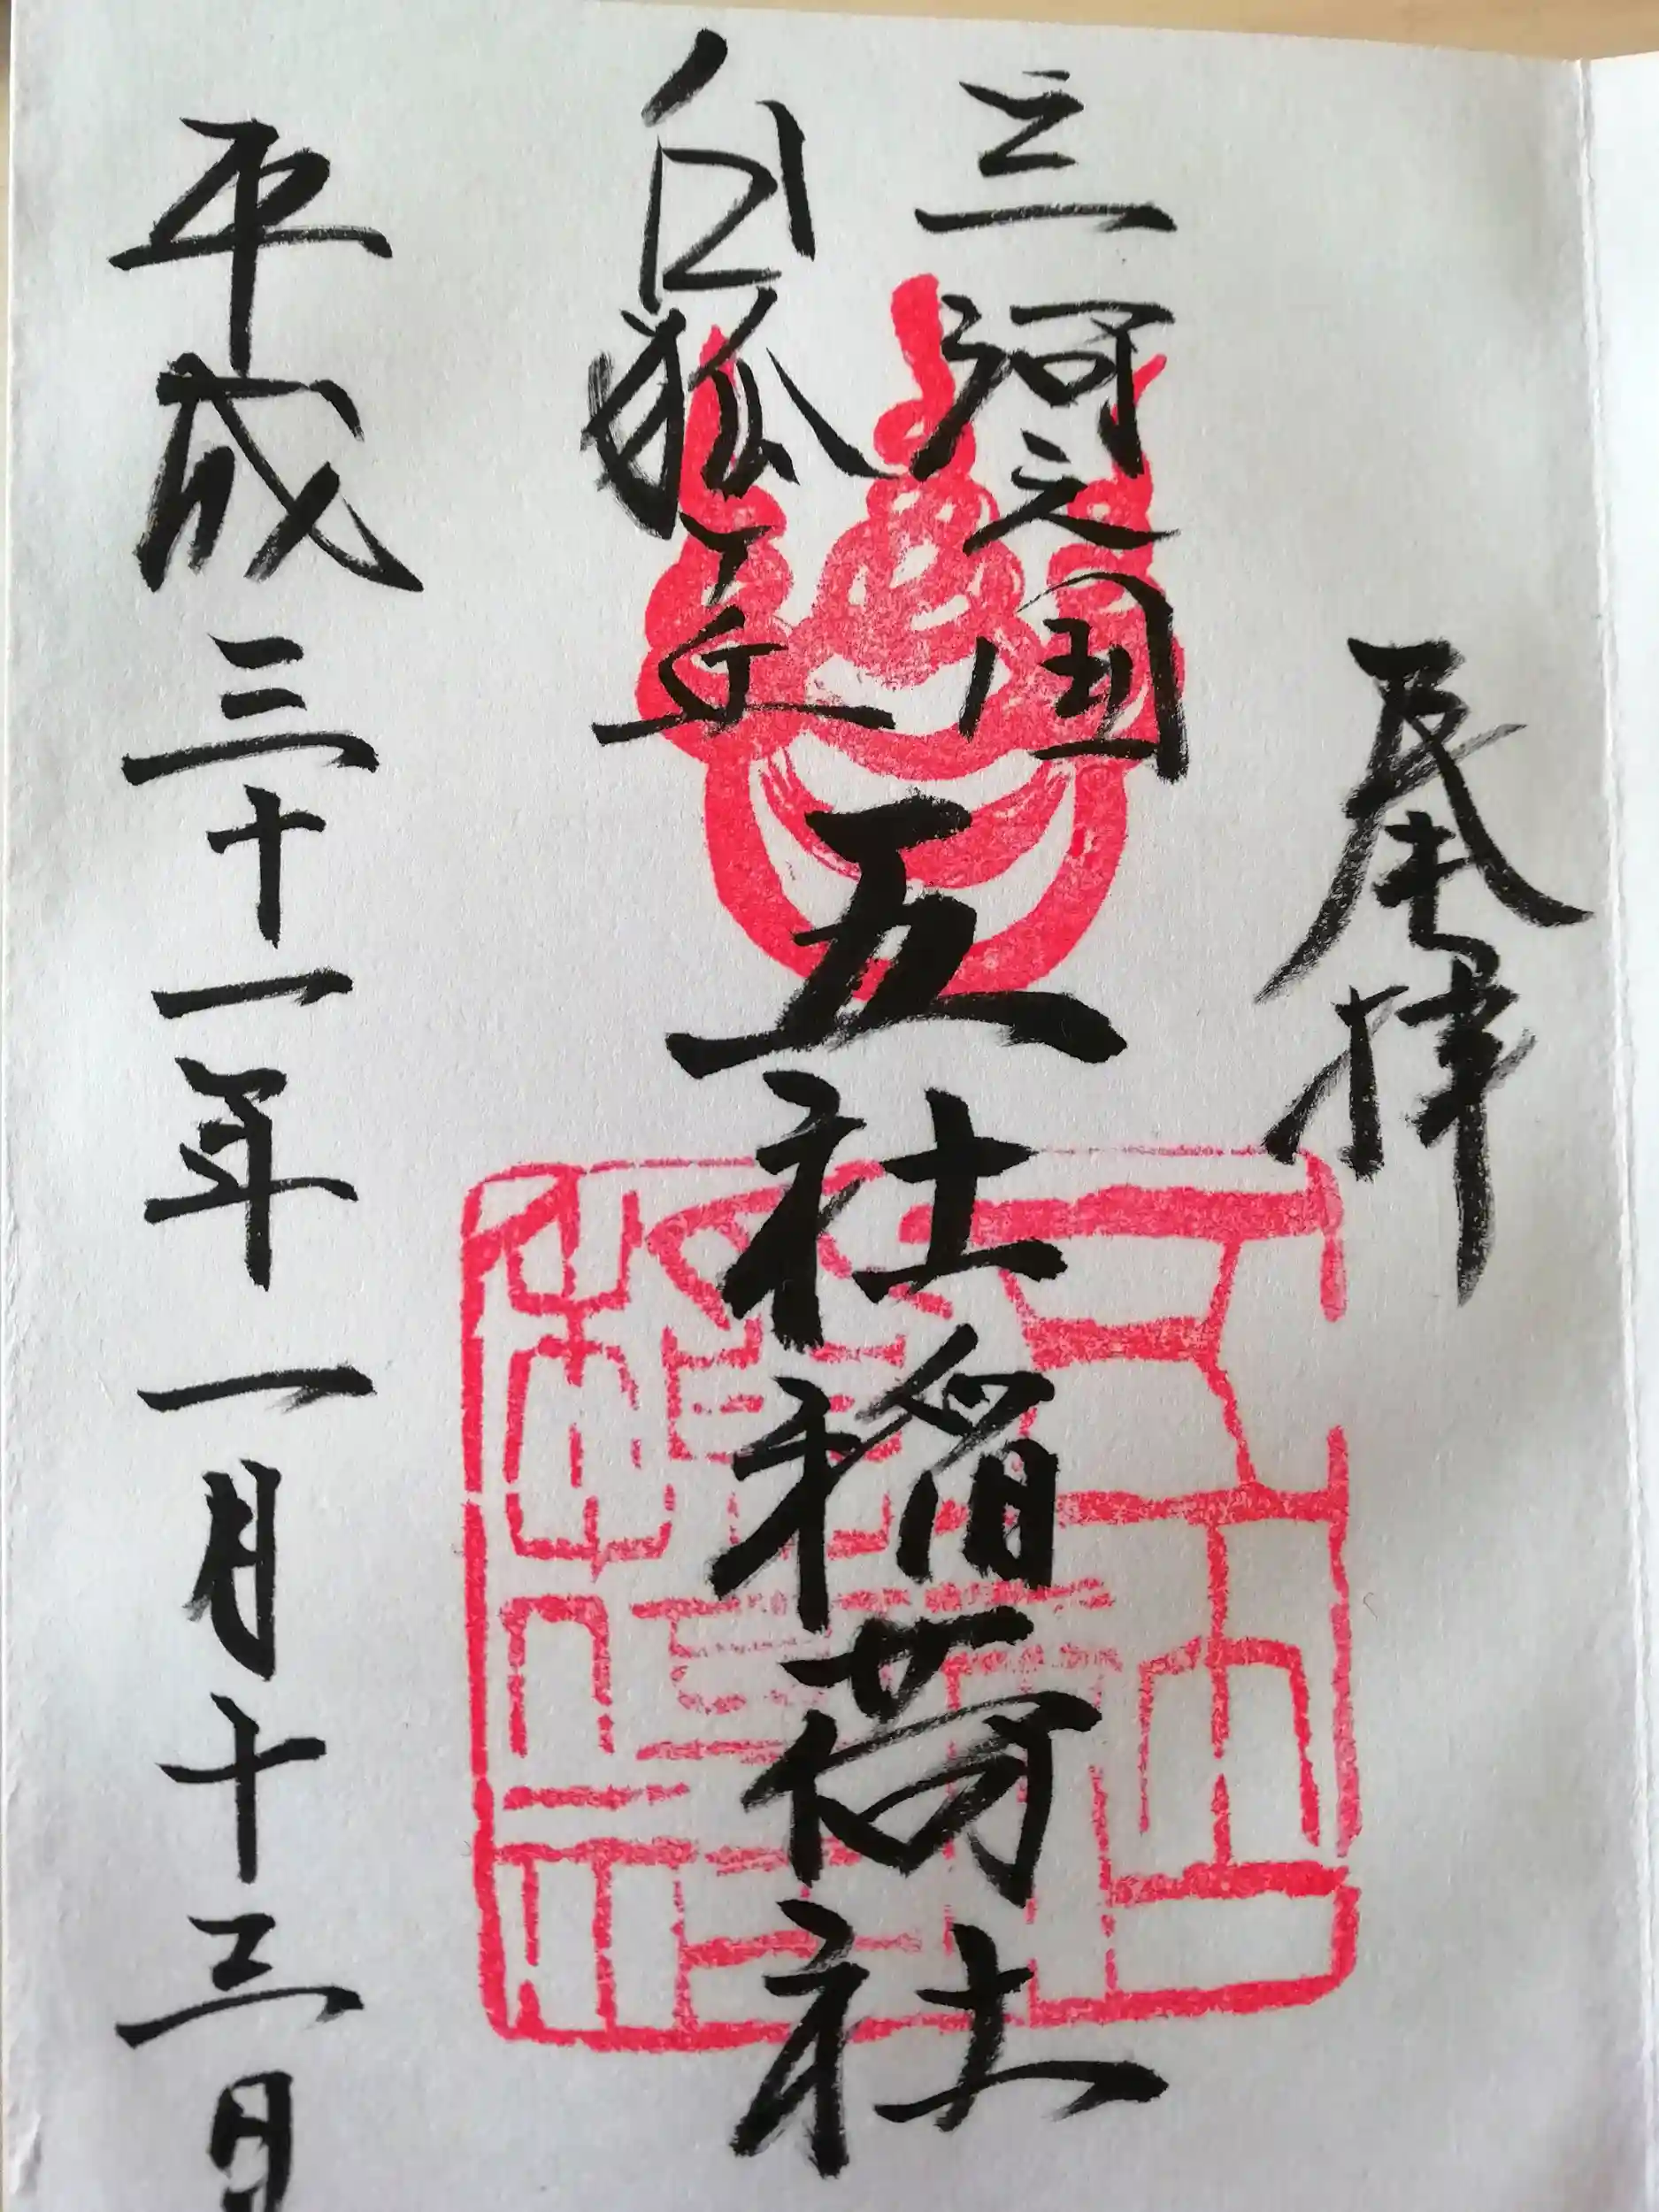 奉拝
三河之国
白狐
五社稲荷社
平成三十一年一月十三日